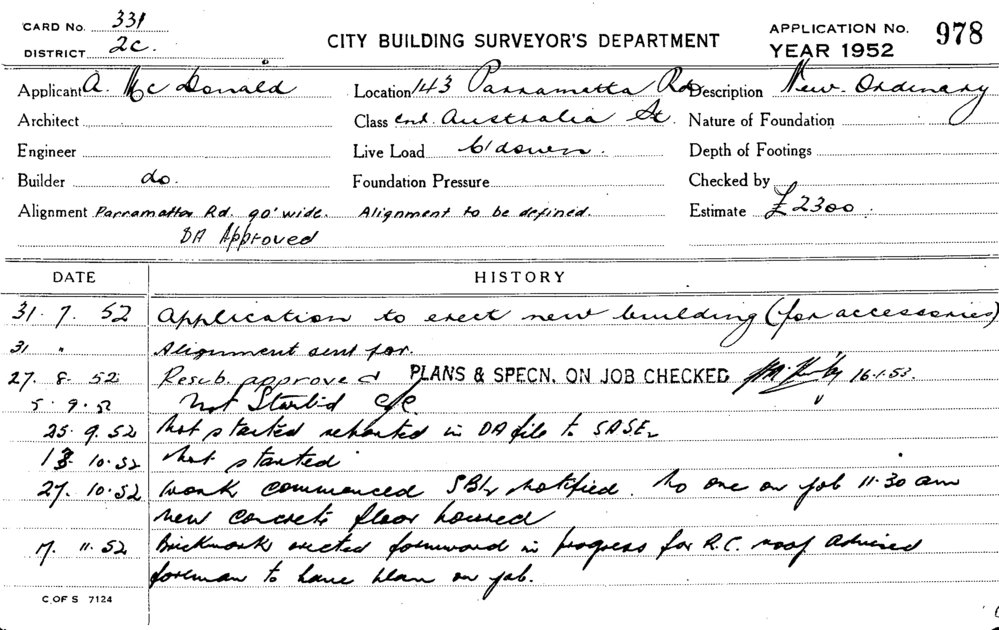 CARD No. 331
DISTRICT 2c.
CITY BUILDING SURVEYOR'S DEPARTMENT
APPLICATION No. 978
YEAR 1952
Applicant A. McDonald Location 143 Parramatta Rd Description New. Ordinary
Architect Class cnr. Australia St. Nature of Foundation
Engineer Live Load C'down. Depth of Footings
Builder do. Foundation Pressure Checked by
Alignment Parramatta Rd. 90' wide. Alignment to be defined. Estimate £2300.
DA Approved
DATE HISTORY
31. 7. 52 Application to erect new building (for accessories)
31 " Alignment sent for.
27. 8. 52 Resub. approved PLANS & SPECN. ON JOB CHECKED 16.1.53.
5. 9. 52 Not Started
25. 9. 52 Not started reported in DA file to
13. 10. 52 Not started
27. 10. 52 Work commenced notified. No one on job 11.30 am
new concrete floor poured
17. 11. 52 Brickwork erected formword in progress for R.C. roof advised
foreman to have plan on job.
C OF S 7124